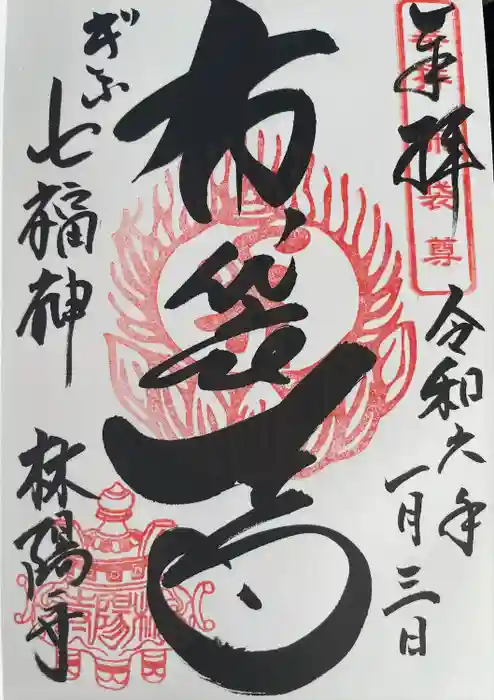 奉拝
令和六年
一月三日
布袋尊
ぎふ
七福神
林陽寺